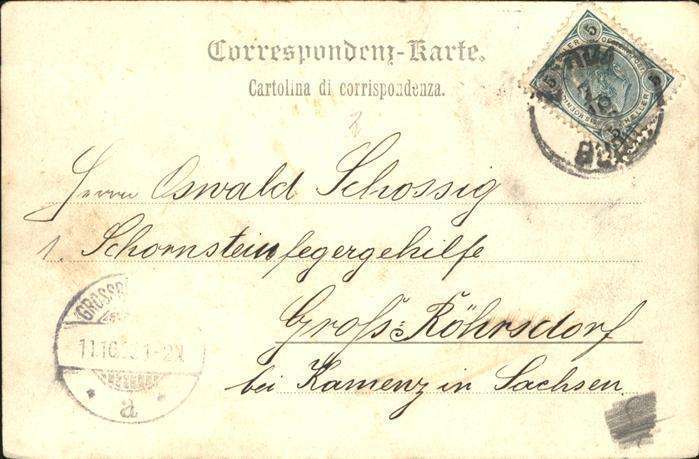 Correspondenz-Karte.
Cartolina di corrispondenza.
5
5
5
Herrn Oswald Schossig
1. Schornsteinfegergehilfe
Groß-Röhrsdorf
bei Kamenz in Sachsen
GROSSR
11.10. 1-2N
a